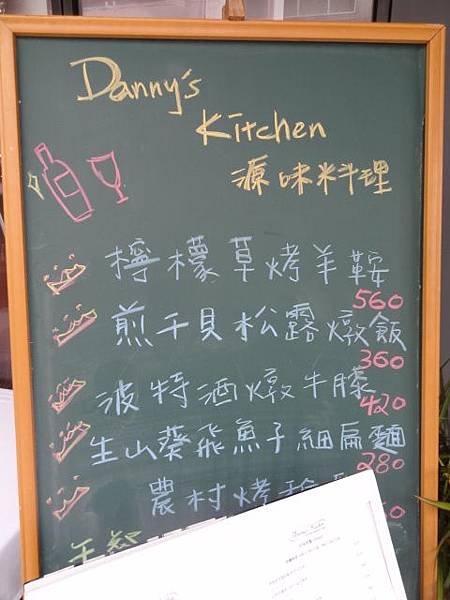 Danny's
Kitchen
源味料理
檸檬草烤羊鞍
560
煎干貝松露燉飯
360
波特酒燉牛膝
420
生山葵飛魚子細扁麵
280
農村烤